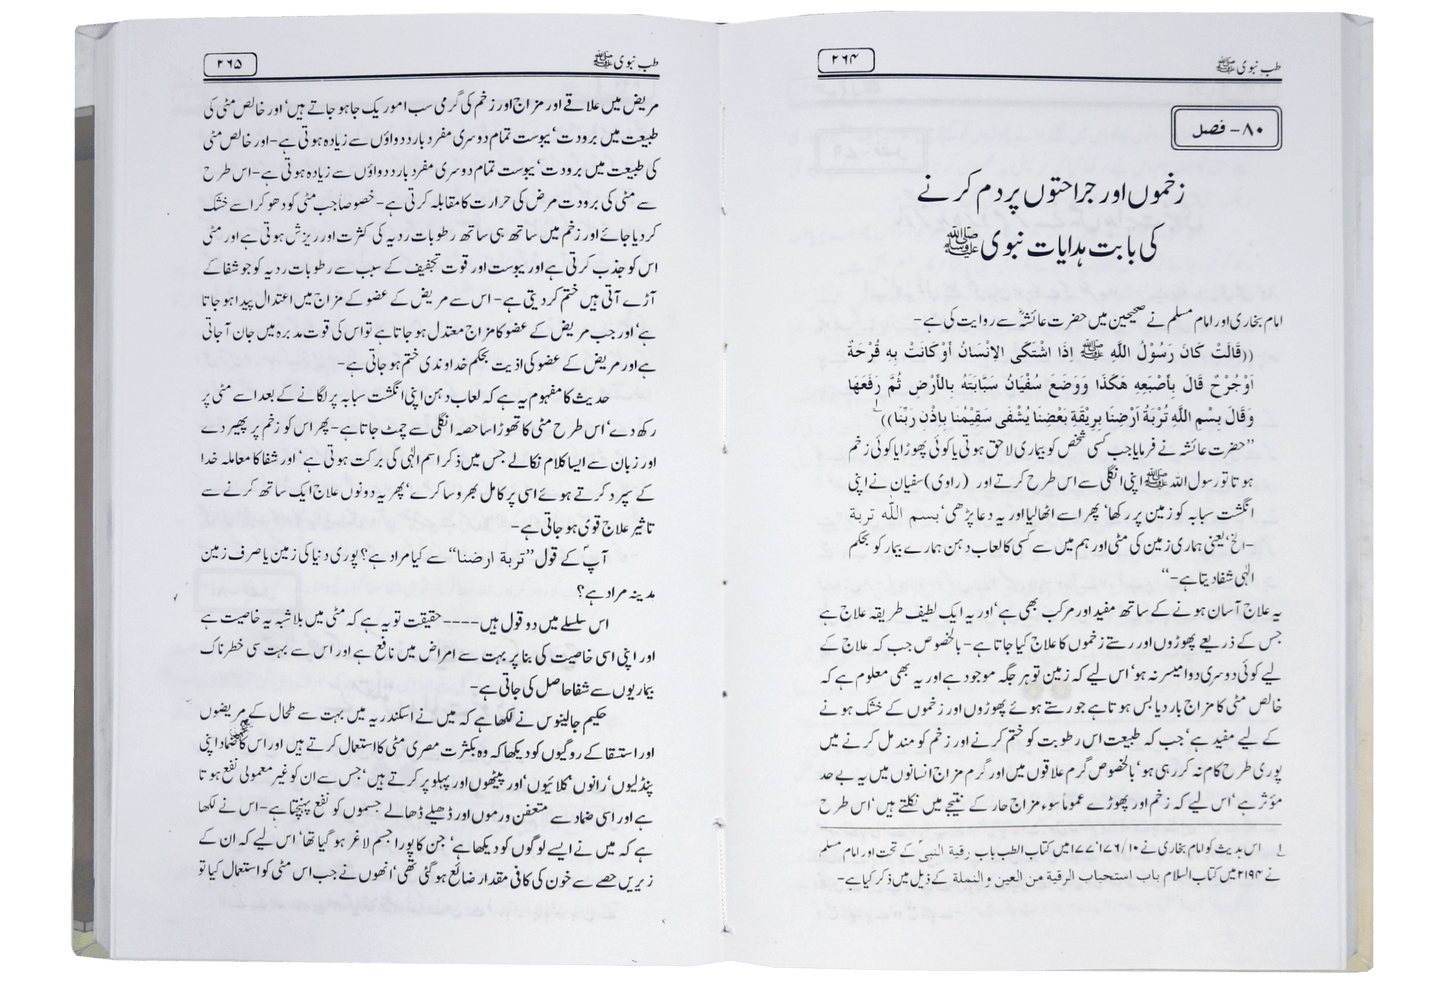 طب نبوی ﷺ
۲۶۴
۸۰- فصل
زخموں اور جراحتوں پر دم کرنے
کی بابت ہدایات نبوی ﷺ
امام بخاری اور امام مسلم نے صحیحین میں حضرت عائشہؓ سے روایت کی ہے-
((قَالَتْ كَانَ رَسُوْلُ اللَّهِ ﷺ إِذَا اشْتَكَى الإِنْسَانُ أَوْ كَانَتْ بِهِ قُرْحَةٌ
اَوْجُرْحٌ قَالَ بِأَصْبَعِهِ هَكَذَا وَوَضَعَ سُفْيَانُ سَبَّابَتَهُ بِالأَرْضِ ثُمَّ رَفَعَهَا
وَقَالَ بِسْمِ اللَّهِ تُرْبَةُ أَرْضِنَا بِرِيْقَةِ بَعْضِنَا يُشْفَى سَقِيْمُنَا بِإِذْنِ رَبِّنَا))۱؎
’’حضرت عائشہ نے فرمایا جب کسی شخص کو بیماری لاحق ہوتی یا کوئی پھوڑا یا کوئی زخم
ہوتا تو رسول اللہ ﷺ اپنی انگلی سے اس طرح کرتے اور (راوی) سفیان نے اپنی
انگشت سبابہ کو زمین پر رکھا‘ پھر اسے اٹھالیا اور یہ دعا پڑھی‘ بسم اللہ تربۃ
-الخ‘ یعنی ہماری زمین کی مٹی اور ہم میں سے کسی کا لعاب دہن ہمارے بیمار کو بحکم
الٰہی شفا دیتا ہے-‘‘
یہ علاج آسان ہونے کے ساتھ مفید اور مرکب بھی ہے‘ اور یہ ایک لطیف طریقہ علاج ہے
جس کے ذریعے پھوڑوں اور رستے زخموں کا علاج کیا جاتا ہے- بالخصوص جب کہ علاج کے
لیے کوئی دوسری دوا میسر نہ ہو‘ اس لیے کہ زمین تو ہر جگہ موجود ہے اور یہ بھی معلوم ہے کہ
خالص مٹی کا مزاج بارد یابس ہوتا ہے جو رستے ہوئے پھوڑوں اور زخموں کے خشک ہونے
کے لیے مفید ہے‘ جب کہ طبیعت اس رطوبت کو ختم کرنے اور زخم کو مندمل کرنے میں
پوری طرح کام نہ کر رہی ہو‘ بالخصوص گرم علاقوں میں اور گرم مزاج انسانوں میں یہ بے حد
مؤثر ہے‘ اس لیے کہ زخم اور پھوڑے عموماً سوء مزاج حار کے نتیجے میں نکلتے ہیں‘ اس طرح
۱؎ اس حدیث کو امام بخاری نے ۱۰/۱۷۶‘ ۱۷۷ میں کتاب الطب باب رقیة النبیؐ کے تحت اور امام مسلم
نے ۲۱۹۴ میں کتاب السلام باب استحباب الرقیة من العین والنملة کے ذیل میں ذکر کیا ہے-
طب نبوی ﷺ
۲۶۵
مریض میں علاقے اور مزاج اور زخم کی گرمی سب امور یک جا ہو جاتے ہیں‘ اور خالص مٹی کی
طبیعت میں برودت‘ یبوست تمام دوسری مفرد بارد دواؤں سے زیادہ ہوتی ہے- اور خالص مٹی
کی طبیعت میں برودت‘ یبوست تمام دوسری مفرد بارد دواؤں سے زیادہ ہوتی ہے- اس طرح
سے مٹی کی برودت مرض کی حرارت کا مقابلہ کرتی ہے- خصوصاً جب مٹی کو دھو کر اسے خشک
کر دیا جائے اور زخم میں ساتھ ہی ساتھ رطوبات ردیہ کی کثرت اور ریزش ہوتی ہے اور مٹی
اس کو جذب کرتی ہے اور یبوست اور قوت تجفیف کے سبب سے رطوبات ردیہ کو جو شفا کے
آڑے آتی ہیں ختم کر دیتی ہے- اس سے مریض کے عضو کے مزاج میں اعتدال پیدا ہو جاتا
ہے‘ اور جب مریض کے عضو کا مزاج معتدل ہو جاتا ہے تو اس کی قوت مدبرہ میں جان آ جاتی
ہے اور مریض کے عضو کی اذیت بحکم خداوندی ختم ہو جاتی ہے-
حدیث کا مفہوم یہ ہے کہ لعاب دہن اپنی انگشت سبابہ پر لگانے کے بعد اسے مٹی پر
رکھ دے‘ اس طرح مٹی کا تھوڑا سا حصہ انگلی سے چمٹ جاتا ہے- پھر اس کو زخم پر پھیر دے
اور زبان سے ایسا کلام نکالے جس میں ذکر اسم الٰہی کی برکت ہوتی ہے‘ اور شفا کا معاملہ خدا
کے سپرد کرتے ہوئے اسی پر کامل بھروسا کرے‘ پھر یہ دونوں علاج ایک ساتھ کرنے سے
تاثیر علاج قوی ہو جاتی ہے-
آپؐ کے قول ’’تربة ارضنا‘‘ سے کیا مراد ہے؟ پوری دنیا کی زمین یا صرف زمین
مدینہ مراد ہے؟
اس سلسلے میں دو قول ہیں---- حقیقت تو یہ ہے کہ مٹی میں بلاشبہ یہ خاصیت ہے
اور اپنی اسی خاصیت کی بنا پر بہت سے امراض میں نافع ہے اور اس سے بہت سی خطرناک
بیماریوں سے شفا حاصل کی جاتی ہے-
حکیم جالینوس نے لکھا ہے کہ میں نے اسکندریہ میں بہت سے طحال کے مریضوں
اور استسقا کے روگیوں کو دیکھا کہ وہ بکثرت مصری مٹی کا استعمال کرتے ہیں اور اس کا ضماد اپنی
پنڈلیوں‘ رانوں‘ کلائیوں‘ اور پیٹھوں اور پہلو پر کرتے ہیں‘ جس سے ان کو غیر معمولی نفع ہوتا
ہے اور اسی ضماد سے متعفن ورموں اور ڈھیلے ڈھالے جسموں کو نفع پہنچتا ہے- اس نے لکھا
ہے کہ میں نے ایسے لوگوں کو دیکھا ہے‘ جن کا پورا جسم لاغر ہو گیا تھا‘ اس لیے کہ ان کے
زیریں حصے سے خون کی کافی مقدار ضائع ہو گئی تھی‘ انھوں نے جب اس مٹی کو استعمال کیا تو